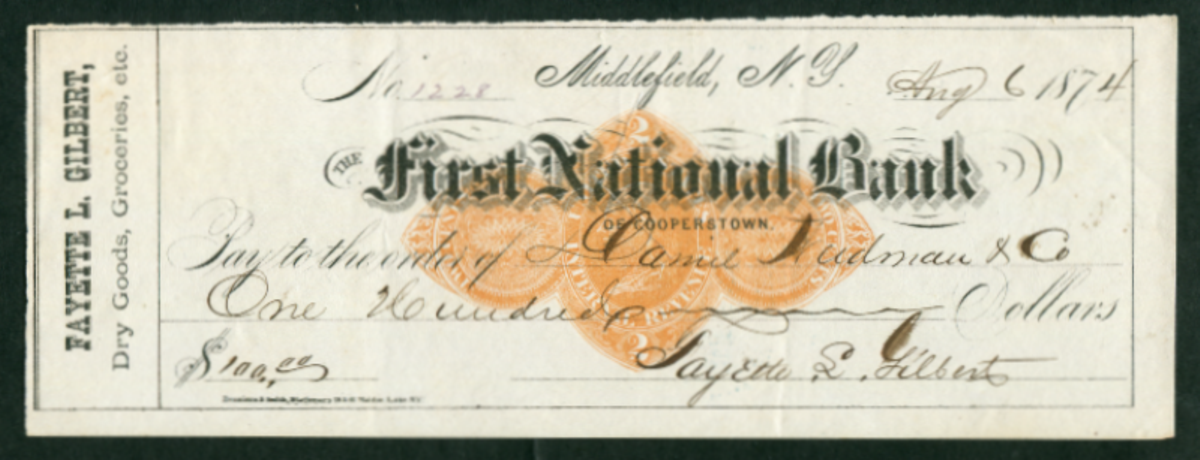 FAYETTE L. GILBERT,
Dry Goods, Groceries, etc.
No. 1228 Middlefield, N. Y. Aug 6 1874
THE First National Bank
OF COOPERSTOWN.
Pay to the order of & Co
One Hundred Dollars
$100.00 Fayette L. Gilbert
2
INTERNAL REVENUE
2